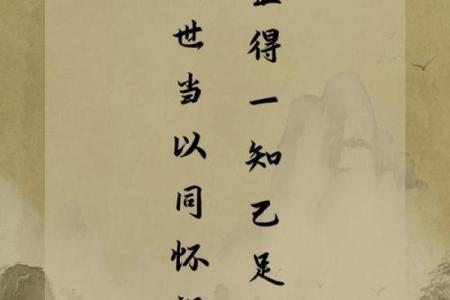 得一知己足
世当以同怀